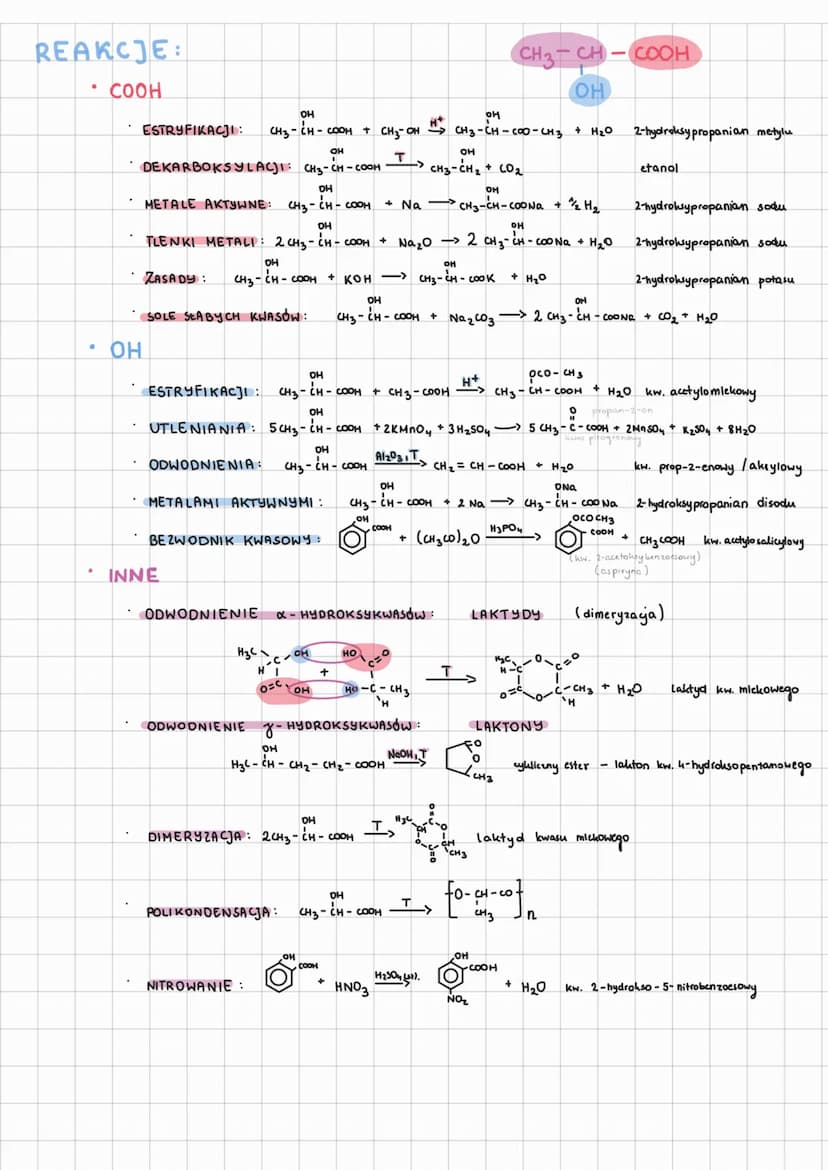 REAKCJE:
CH3 - CH - COOH
OH
• COOH
OH OH
• ESTRYFIKACJI: CH3 - CH - COOH + CH3-OH H+ → CH3 - CH - COO - CH3 + H2O 2-hydroksypropanian metylu
OH OH
• DEKARBOKSYLACJI: CH3 - CH - COOH T → CH3 - CH2 + CO2 etanol
OH OH
• METALE AKTYWNE: CH3 - CH - COOH + Na → CH3-CH-COONa + 1/2 H2 2-hydroksypropanian sodu
OH OH
• TLENKI METALI: 2 CH3 - CH - COOH + Na2O → 2 CH3 - CH - COONa + H2O 2-hydroksypropanian sodu
OH OH
• ZASADY: CH3 - CH - COOH + KOH → CH3 - CH - COOK + H2O 2-hydroksypropanian potasu
OH OH
• SOLE SŁABYCH KWASÓW: CH3 - CH - COOH + Na2CO3 → 2 CH3 - CH - COONa + CO2 + H2O
• OH
OH OCO - CH3
• ESTRYFIKACJI: CH3 - CH - COOH + CH3 - COOH H+ → CH3 - CH - COOH + H2O kw. acetylomlekowy
OH O propan-2-on
• UTLENIANIA: 5 CH3 - CH - COOH + 2KMnO4 + 3H2SO4 → 5 CH3 - C - COOH + 2MnSO4 + K2SO4 + 8H2O
kwas pirogronowy
OH
• ODWODNIENIA: CH3 - CH - COOH Al2O3, T → CH2 = CH - COOH + H2O kw. prop-2-enowy / akrylowy
OH ONa
• METALAMI AKTYWNYMI: CH3 - CH - COOH + 2 Na → CH3 - CH - COONa 2-hydroksypropanian disodu
OH COOH OCOCH3 COOH
• BEZWODNIK KWASOWY: + (CH3CO)2O H3PO4 → + CH3COOH kw. acetylosalicylowy
(kw. 2-acetoksybenzoesowy)
(aspiryna)
• INNE
• ODWODNIENIE α-HYDROKSYKWASÓW: LAKTYDY (dimeryzacja)
H3C OH HO O H3C O O
H C + C T → H-C C
O=C OH HO - C - CH3 O=C C - CH3 + H2O laktyd kw. mlekowego
H O H
• ODWODNIENIE γ-HYDROKSYKWASÓW: LAKTONY
OH
H3C - CH - CH2 - CH2 - COOH NaOH, T → O O CH3 cykliczny ester - lakton kw. 4-hydroksopentanowego
OH H3C O
• DIMERYZACJA: 2CH3 - CH - COOH T → CH C O O C CH O CH3 laktyd kwasu mlekowego
OH
• POLIKONDENSACJA: CH3 - CH - COOH T → [O - CH - CO]n
CH3
OH COOH OH COOH
• NITROWANIE: + HNO3 H2SO4 (st). → + H2O kw. 2-hydrokso-5-nitrobenzoesowy
NO2